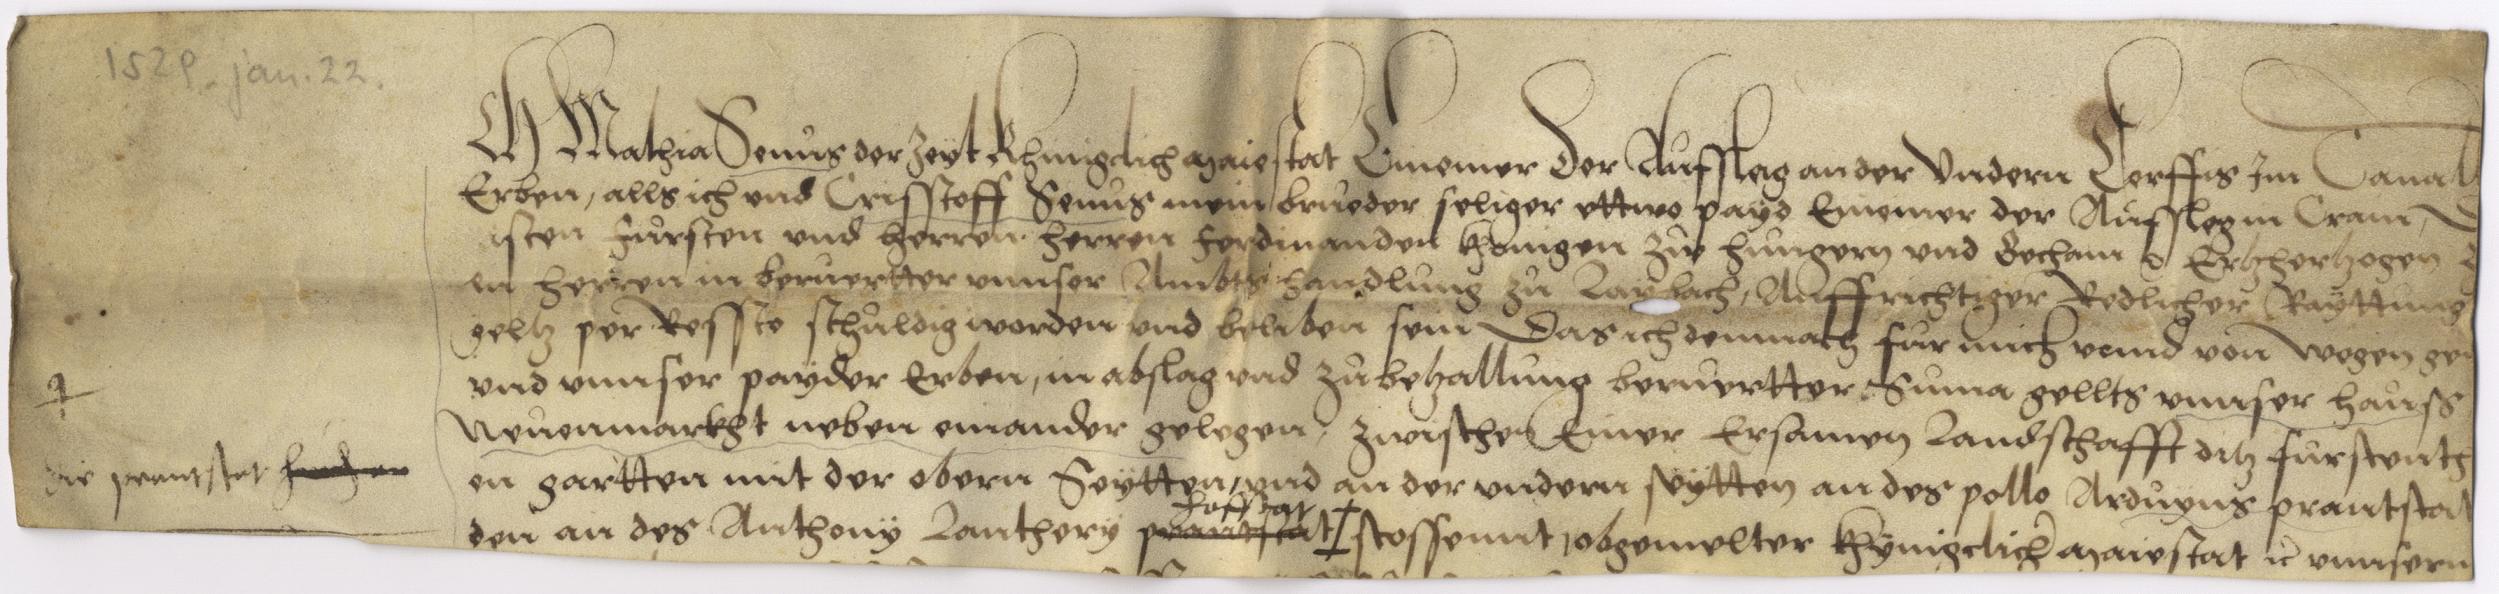 1529. jan. 22.
Ich Mathia Senus der Zeyt Khunigclich maiestat Einemer der Aufsleg an der Undern Terffis Im Canal
Erben, alls ich vnd Cristoff Senus mein brueder seliger ettwo payd Einemer der Aufsleg in Crain,
isten fürsten vnd herren herren ferdinanden khunigen zue hungern vnd Bechaim ec Ertzhertzogen
en herren in beruertter vnnser Ambts handlung zu Laybach, Auffrichtiger Redlicher Rayttung
geltz per Resste schuldig worden vnd beliben sein Das ich demnach für mich vnnd von wegen ge
vnd vnnser payder Erben, in abslag vnd zubetzallung beruertter Suma gellts vnnser hauss
Neuenmarkht neben einander gelegen, zwischen Einer Ersamen Landschafft ditz fürstenth
en gartten mit der obern Seytten, vnd an der vndern seytten an des pollo Arduyns prantstat
hofstat
den an des Anthony Lanthery prantstat stossennt, obgemelter Khynigclicher maiestat ec vnnsern
die prantstat